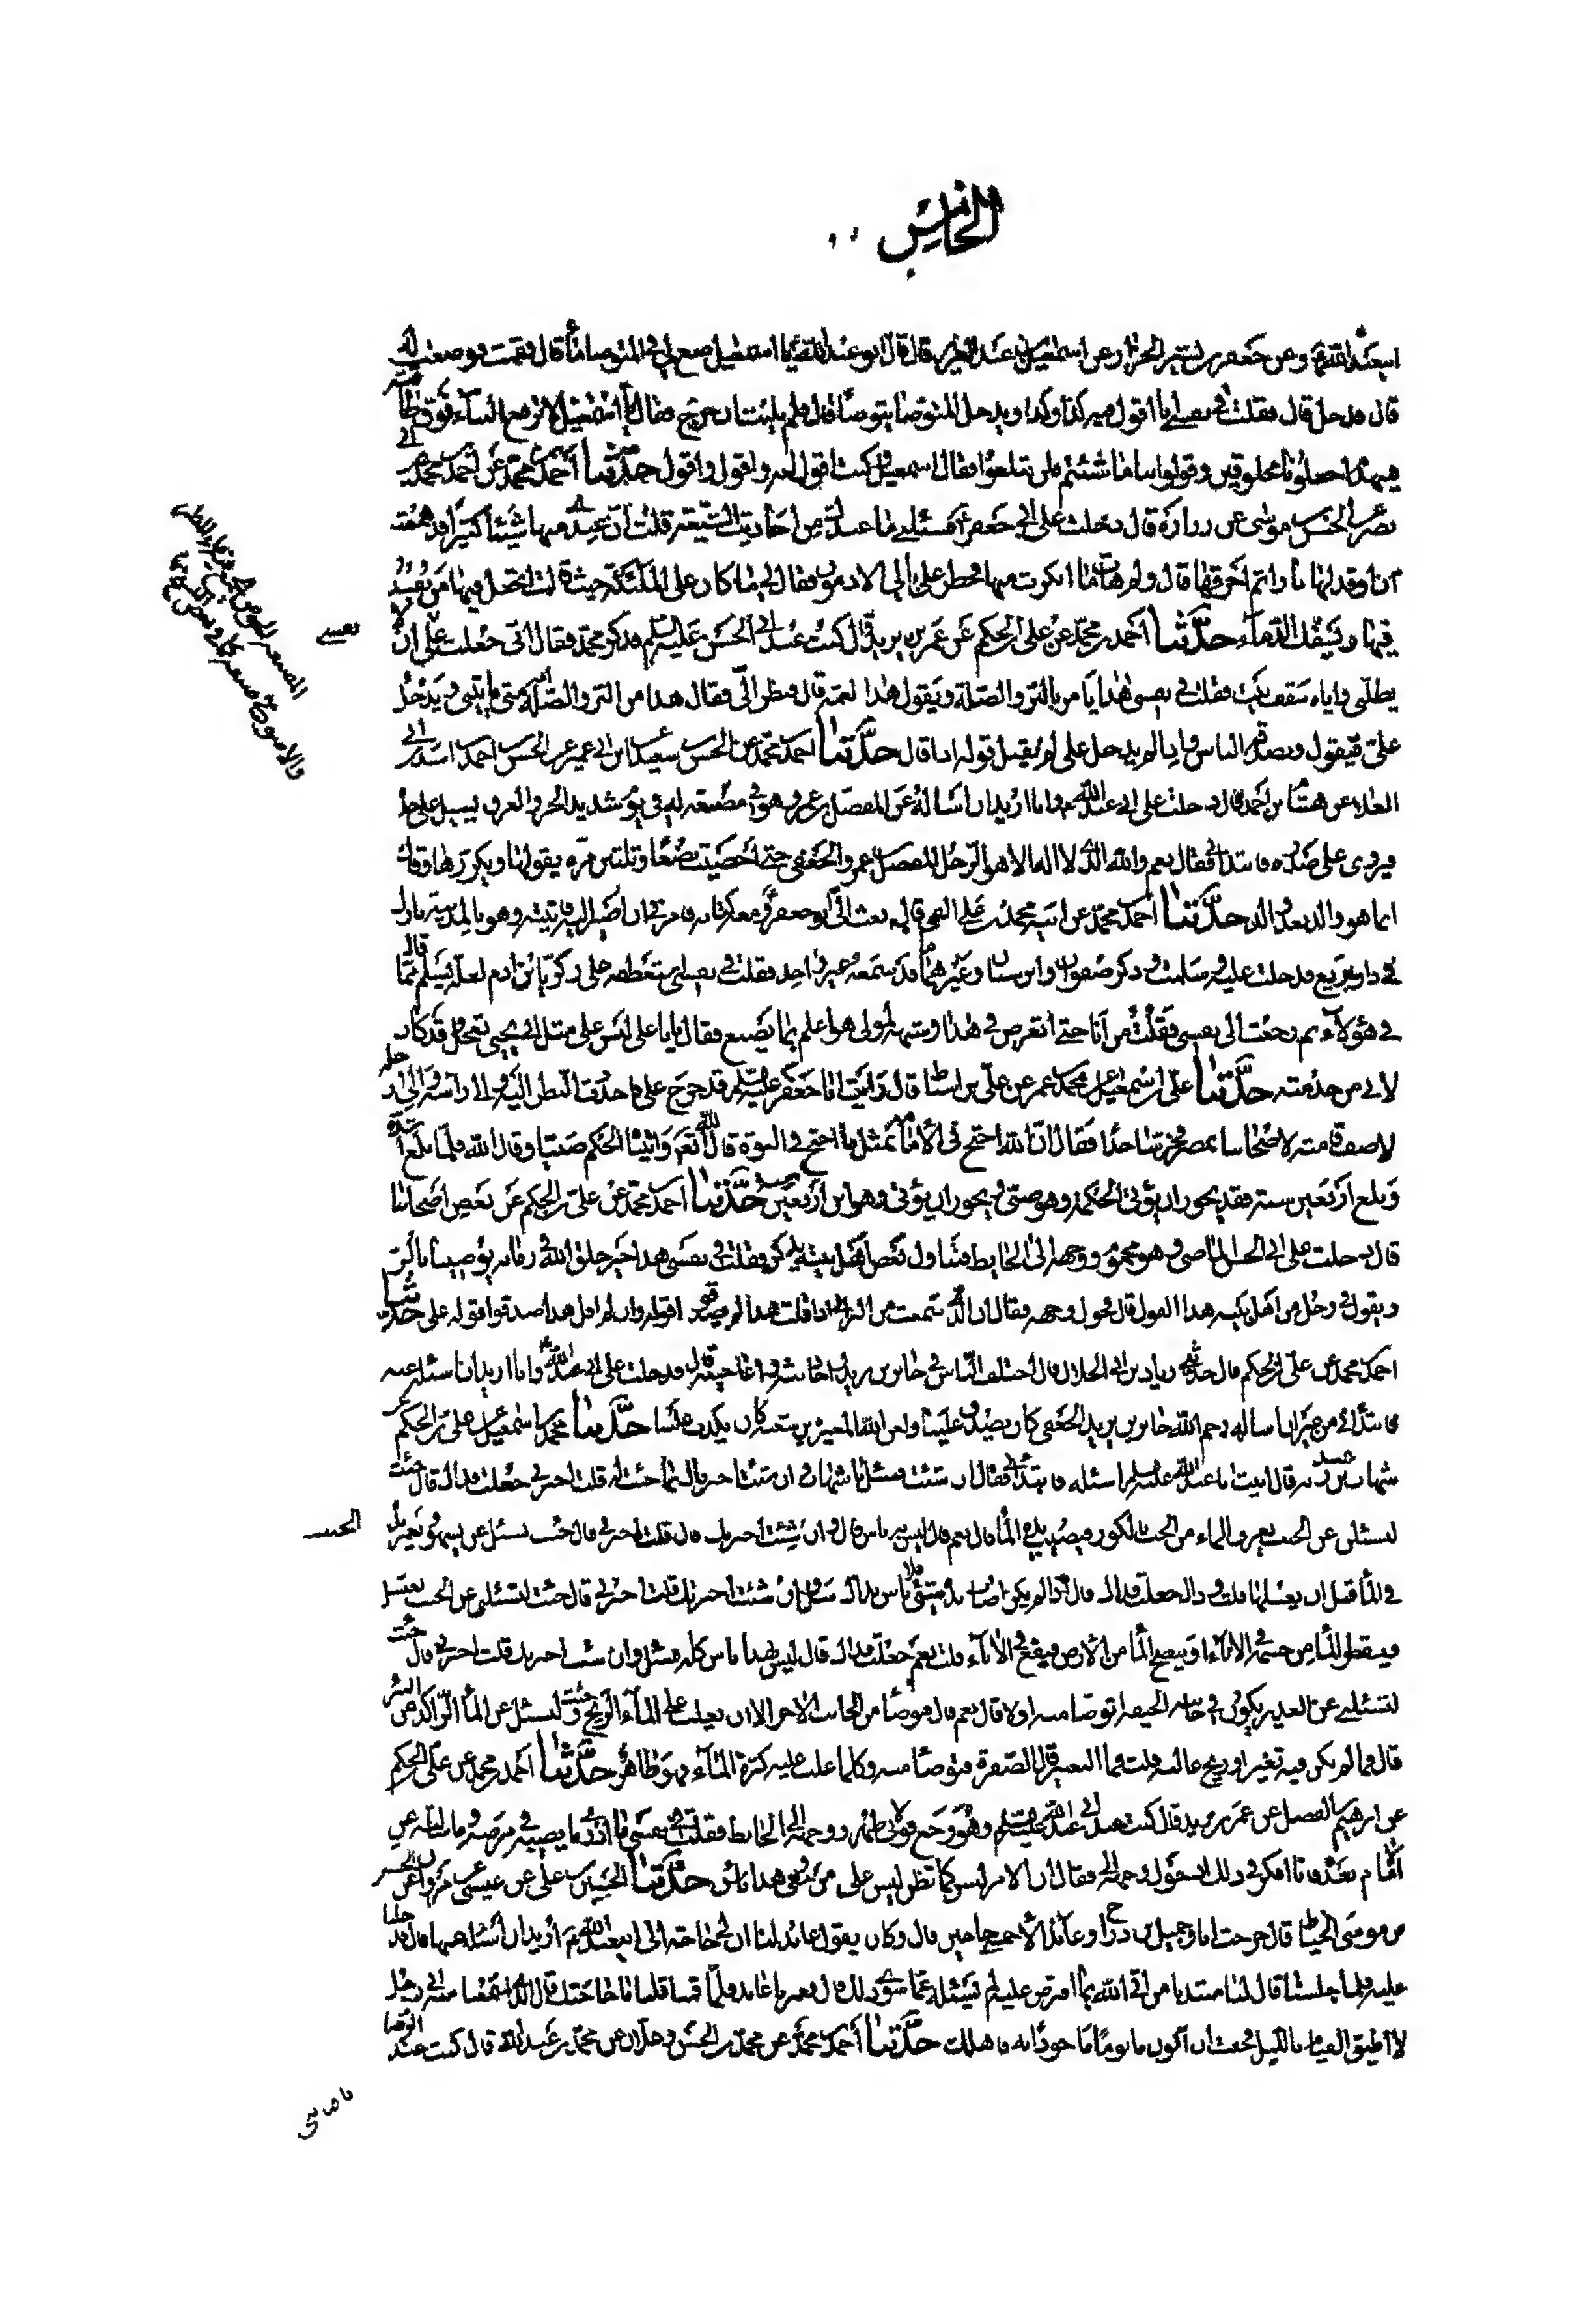 الخامس
ابى عبد الله ع وعن جعفر بن بشير الخزاز عن اسمعيل بن عبد العزيز قال قال ابو عبد الله ع يا اسمعيل ضع لى فى المتوضا ماء قال فقمت فوضعت له
قال فدخل قال فقلت فى نفسى انا اقول فيه كذا وكذا ويدخل المتوضا يتوضا قال فلم يلبث ان خرج فقال يا اسمعيل لا ترفع البناء فوق طاقته
فينهدم اجعلونا مخلوقين وقولوا بنا ما شئتم فلن تبلغوا فقال اسمعيل وكنت اقول انه واقول واقول حدثنا احمد بن محمد عن احمد بن محمد بن ابى
نصر عن الحسن بن موسى عن زرارة قال دخلت على ابى جعفر ع فسئلنى ما عندك من احاديث الشيعة قلت ان عندى منها شيئا كثيرا قد هممت
ان اوقد لها نارا ثم احرقها قال ولم هات ما انكرت منها فخطر على بالى الادمون فقال لى ما كان على الملئكة حيث قالت اتجعل فيها من يفسد
فيها ويسفك الدماء حدثنا احمد بن محمد عن على بن الحكم عن عمر بن يزيد قال كنت عند ابى الحسن عليه السلم فذكر محمد فقال انى جعلت على ان لا
يظلنى واياه سقف بيت فقلت فى نفسى هذا يامر بالبر والصلة ويقول هذا لعمه قال فنظر الى فقال هذا من البر والصلة انه متى ياتينى ويدخل
على فيقول ويصدقه الناس واذا لم يدخل على لم يقبل قوله اذا قال حدثنا احمد بن محمد عن الحسن بن سعيد عن ابن ابى عمير عن الحسن بن احمد بن اسد بن ابى
العلاء عن هشام بن احمد قال دخلت على ابى عبد الله ع وانا اريد ان اسأله عن المفضل بن عمر وهو فى مصنعة له فى يوم شديد الحر والعرق يسيل على خده
فيجرى على صدره فابتدانى فقال نعم والله الذى لا اله الا هو الرجل المفضل بن عمر والجعفى حتى احصيت بضعا وثلثين مرة يقولها ويكررها وقال
انما هو والد بعد الوالد حدثنا احمد بن محمد عن ابيه محمد بن على القمى قال بعث الى ابو جعفر ع ومعه كتابه فامرنى ان اصير اليه فاتيته وهو بالمدينة نازل
فى دار بزيع فدخلت عليه وسلمت فذكر صفوان وابن سنان وغيرهما ما قد سمعه غير واحد فقلت فى نفسى استعطفه على زكريا بن ادم لعله يسلم مما قال
فى هؤلاء ثم رجعت الى نفسى فقلت من انا حتى اتعرض فى هذا وشبهه لمولى هو اعلم بما يصنع فقال لى يا ابا على ليس على مثل ابى يحيى تعجل وقد كان
لابى من خدمته حدثنا على بن اسمعيل عن محمد بن عمر عن على بن اسباط قال رايت ابا جعفر عليه السلم قد خرج على فاحدقت النظر اليه والى راسه والى رجله
لاصف قامته لاصحابنا بمصر فخر ساجدا فقال ان الله احتج فى الامامة بمثل ما احتج فى النبوة قال الله تعالى واتيناه الحكم صبيا وقال الله فلما بلغ اشده
وبلغ اربعين سنة فقد يجوز ان يؤتى الحكمة وهو صبى ويجوز ان يؤتى وهو ابن اربعين سنة حدثنا احمد بن محمد عن على بن الحكم عن بعض اصحابنا
قال دخلت على ابى الحسن الماضى وهو محموم ووجهه الى الحايط فتناول بعض اهل بيته يذكره فقلت فى نفسى هذا خير خلق الله فى زمانه يوصينا بالبر
ويقول فى رجل من اهل بيته هذا القول قال فحول وجهه فقال ان الذى سمعت من البر انى اذا قلت هذا لم يصدقوا قوله وان لم اقل هذا صدقوا قوله على حدثنا
احمد بن محمد عن على بن الحكم قال حدثنى زياد بن ابى الحلال قال اختلف الناس فى جابر بن يزيد واحاديثه واعاجيبه قال فدخلت على ابى عبد الله ع وانا اريد ان اسئله عنه
فابتدانى من غير ان اساله رحم الله جابر بن يزيد الجعفى كان يصدق علينا ولعن الله المغيرة بن سعيد كان يكذب علينا حدثنا محمد بن اسمعيل عن على بن الحكم عن
شهاب بن عبد ربه قال اتيت ابا عبد الله عليه السلم اسئله فابتدانى فقال ان شئت فسئل يا شهاب وان شئت اخبرناك بما جئت له قلت اخبرنى جعلت فداك قال جئت
لتسئلنى عن الجنب يغرف الماء من الحب بالكوز فيصيب يده الماء قال نعم قال ليس به باس قال وان شئت اخبرتك قال قلت اخبرنى قال جئت تسئل عن الجنب يسهو ويغمر يده
فى الماء قبل ان يغسلها قلت وذاك جعلت فداك قال اذا لم يكن اصاب يده شئ فلا باس بذاك سل وان شئت اخبرتك قلت اخبرنى قال جئت لتسئلنى عن الجنب يغتسل
فيقطر الماء من جسمه فى الاناء او ينضح الماء من الارض فيقع فى الاناء قلت نعم جعلت فداك قال ليس بهذا باس كله فسئل وان شئت اخبرتك قلت اخبرنى قال جئت
لتسئلنى عن الغدير يكون فى جانبه الجيفة اتوضا منه او لا قال نعم قال فتوضا من الجانب الاخر الا ان يغلب على الماء الريح وجئت لتسئل عن الماء الراكد من البئر
قال فما لم يكن فيه تغير او ريح غالبة قلت فما التغير قال الصفرة فتوضا منه وكلما غلب عليه كثرة الماء فهو طاهر حدثنا احمد بن محمد عن على بن الحكم
عن ابرهيم بن الفضل عن عمر بن يزيد قال كنت عند ابى عبد الله عليه السلم وهو وجع فولانى ظهره ووجهه الى الحايط فقلت فى نفسى ما ادرى ما يصيبه فى مرضه وما سالته عن
الامام بعده فانا افكر فى ذلك اذ حول وجهه الى فقال ان الامر ليس كما تظن ليس على من وجعى هذا باس حدثنا الحسين بن على عن عيسى عن مروان عن الحسين
بن موسى الحناط قال خرجت انا وجميل بن دراج وعائذ الاحمسى حاجين قال وكان يقول عائذ لنا ان لى حاجة الى ابى عبد الله ع اريد ان اسئله عنها قال فدخلنا
عليه فلما جلسنا قال لنا مبتديا من اتى الله بما افترض عليه لم يسئله عما سوى ذلك قال فغمزنا عائذ فلما قمنا قلنا ما حاجتك قال الذى سمعنا منه انى رجل
لا اطيق القيام بالليل فخفت ان اكون ماثوما ماخوذا به فاهلك حدثنا احمد بن محمد عن محمد بن الحسن بن علان عن محمد بن عبد الله قال كنت عند الرضا
نفسى
الجنب